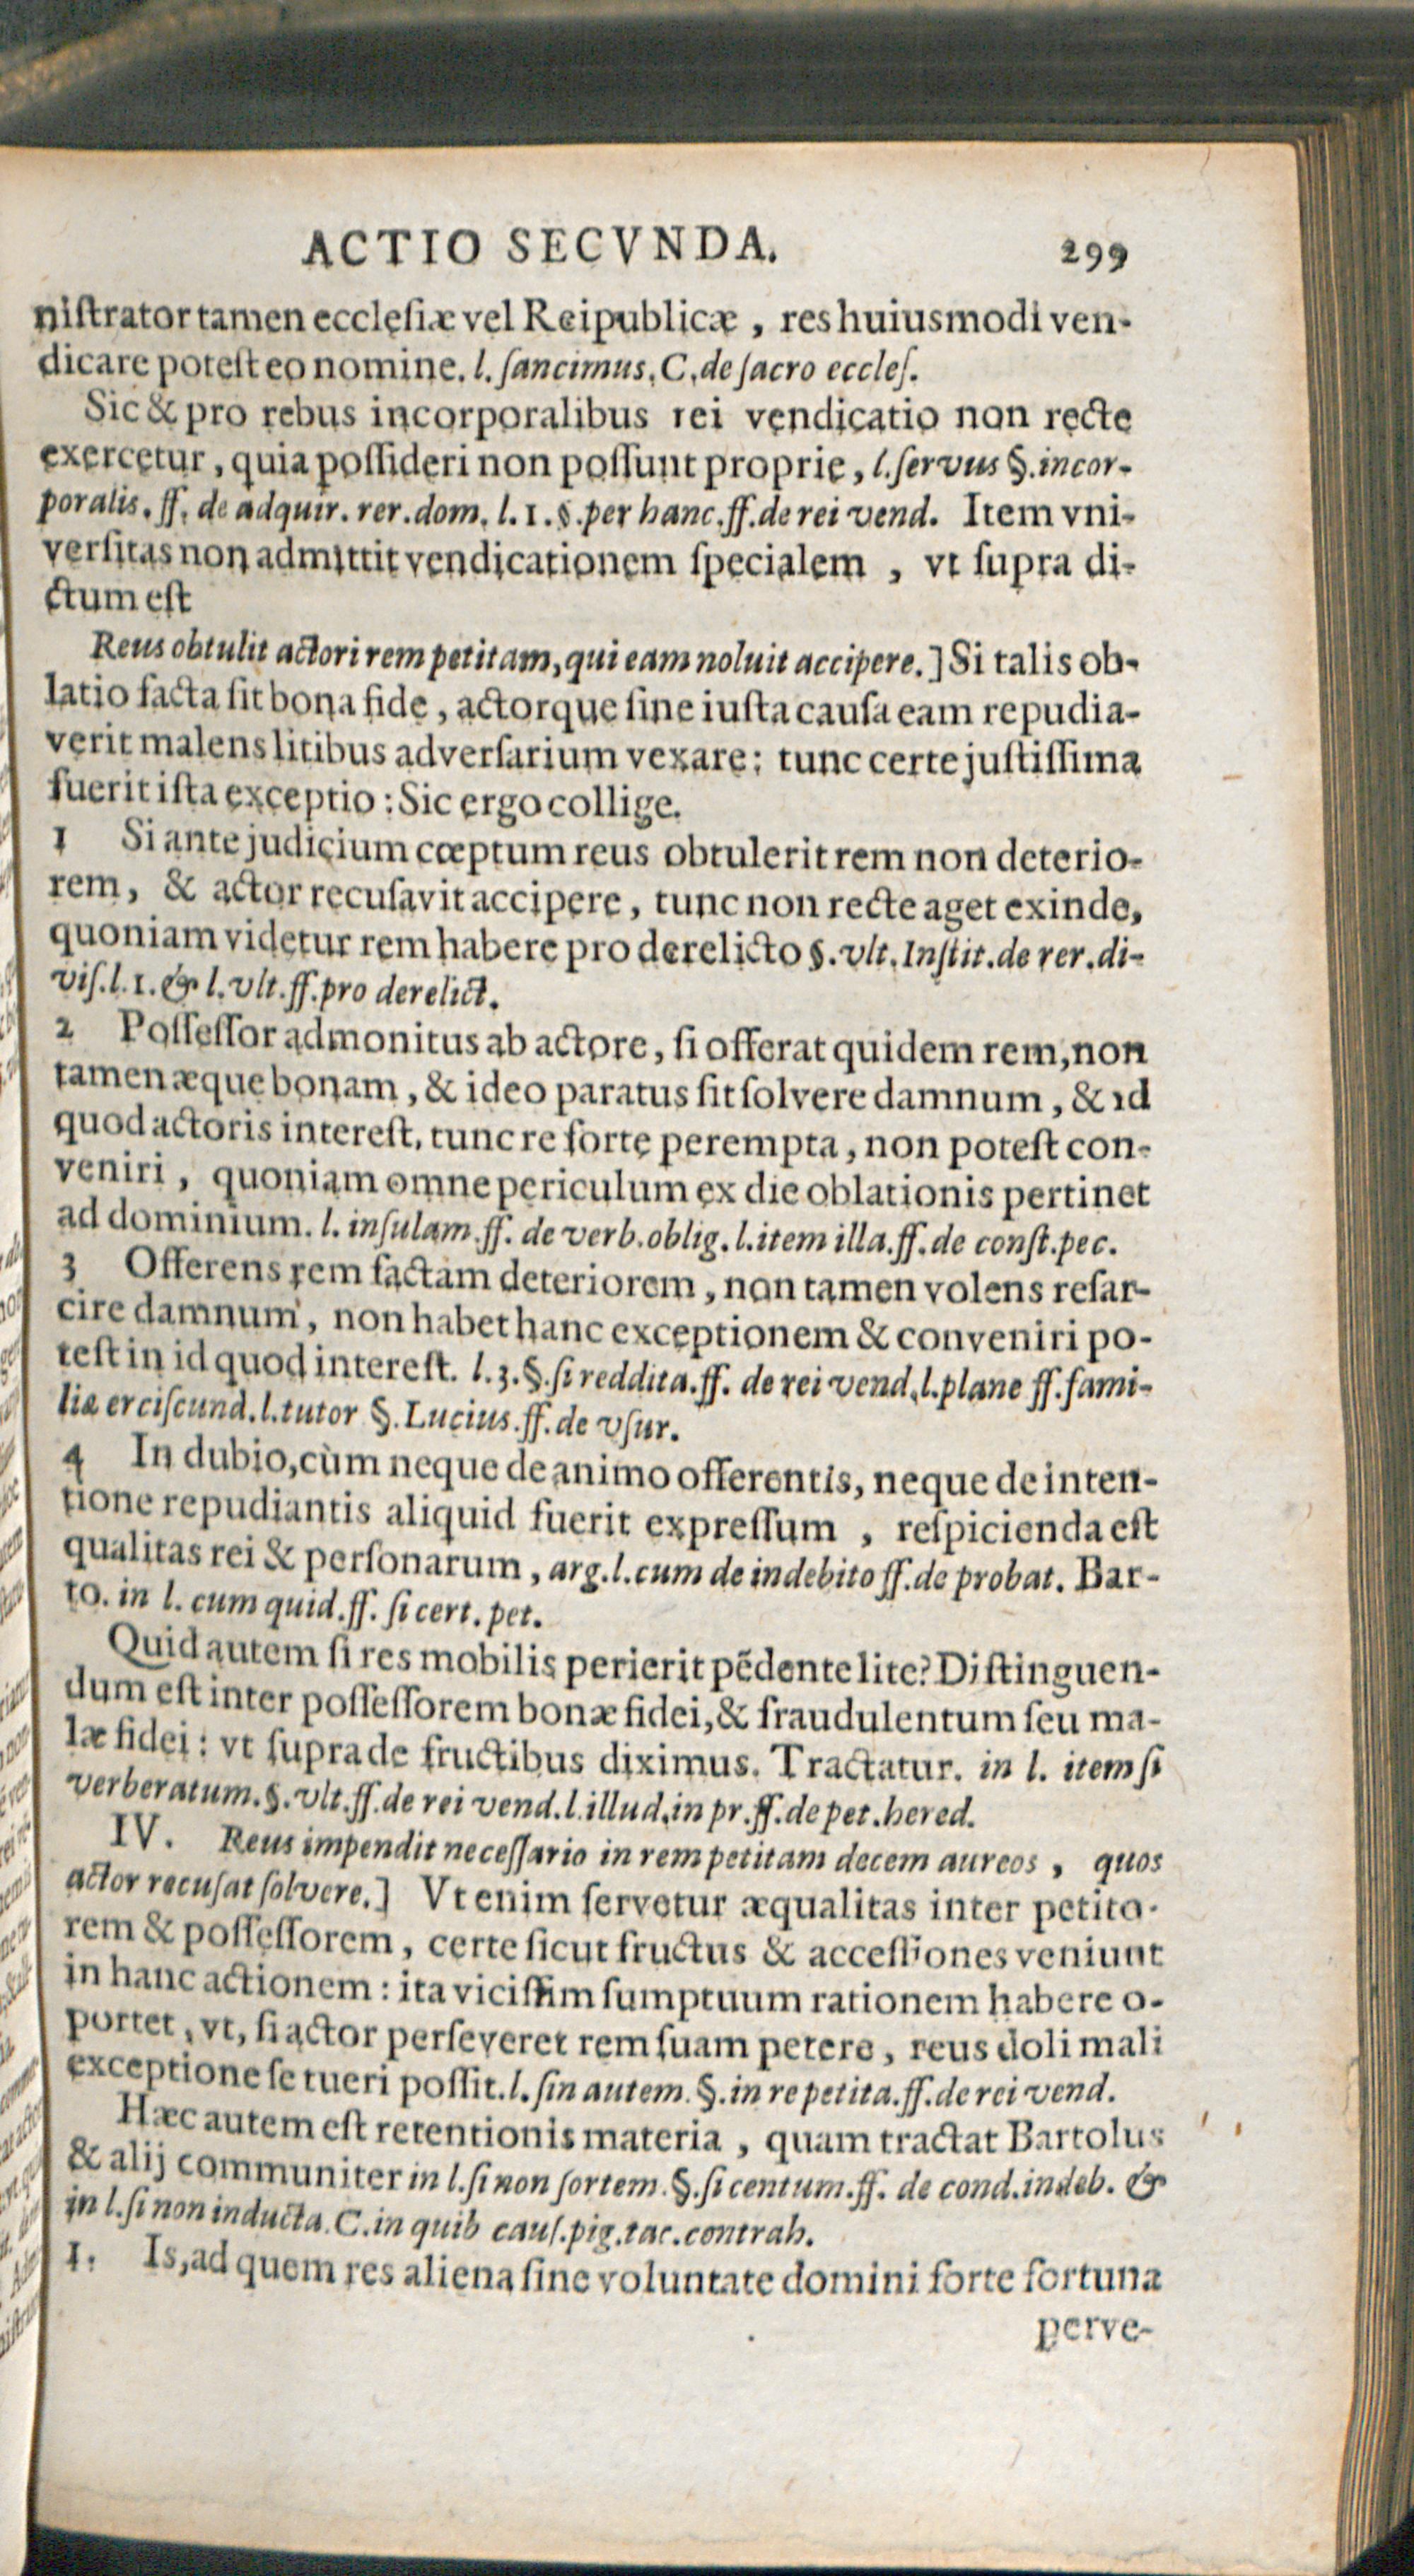 ACTIO SECVNDA. 299
niſtrator tamen eccleſiæ vel Reipublicæ, res huiusmodi ven-
dicare poteſt eo nomine. l. ſancimus, C. de ſacro eccleſ.
Sic & pro rebus incorporalibus rei vendicatio non recte
exercetur, quia poſſideri non poſſunt proprie, l. ſervus §. incor-
poralis. ff. de adquir. rer. dom. l. 1. §. per hanc. ff. de rei vend. Item vni-
verſitas non admittit vendicationem ſpecialem, vt ſupra di-
ctum eſt
Reus obtulit actori rem petitam, qui eam noluit accipere.] Si talis ob-
latio facta ſit bona fide, actorque ſine iuſta cauſa eam repudia-
verit malens litibus adverſarium vexare; tunc certe juſtiſſima
fuerit iſta exceptio: Sic ergo collige.
1 Si ante judicium cœptum reus obtulerit rem non deterio-
rem, & actor recuſavit accipere, tunc non recte aget exinde,
quoniam videtur rem habere pro derelicto §. vlt. Inſtit. de rer. di-
viſ. l. 1. & l. vlt. ff. pro derelict.
2 Poſſeſſor admonitus ab actore, ſi offerat quidem rem, non
tamen æque bonam, & ideo paratus ſit ſolvere damnum, & id
quod actoris intereſt, tunc re forte perempta, non poteſt con-
veniri, quoniam omne periculum ex die oblationis pertinet
ad dominium. l. inſulam. ff. de verb. oblig. l. item illa. ff. de conſt. pec.
3 Offerens rem factam deteriorem, non tamen volens reſar-
cire damnum, non habet hanc exceptionem & conveniri po-
teſt in id quod intereſt. l. 3. §. ſi reddita. ff. de rei vend. l. plane ff. fami-
liæ erciſcund. l. tutor §. Lucius. ff. de vſur.
4 In dubio, cùm neque de animo offerentis, neque de inten-
tione repudiantis aliquid fuerit expreſſum, reſpicienda eſt
qualitas rei & perſonarum, arg. l. cum de indebito ff. de probat. Bar-
to. in l. cum quid. ff. ſi cert. pet.
Quid autem ſi res mobilis perierit pēdente lite? Diſtinguen-
dum eſt inter poſſeſſorem bonæ fidei, & fraudulentum ſeu ma-
læ fidei: vt ſupra de fructibus diximus. Tractatur. in l. item ſi
verberatum. §. vlt. ff. de rei vend. l. illud. in pr. ff. de pet. hered.
IV. Reus impendit neceſſario in rem petitam decem aureos, quos
actor recuſat ſolvere.] Vt enim ſervetur æqualitas inter petito-
rem & poſſeſſorem, certe ſicut fructus & acceſſiones veniunt
in hanc actionem: ita viciſſim ſumptuum rationem habere o-
portet, vt, ſi actor perſeveret rem ſuam petere, reus doli mali
exceptione ſe tueri poſſit. l. ſin autem. §. in re petita. ff. de rei vend.
Hæc autem eſt retentionis materia, quam tractat Bartolus
& alij communiter in l. ſi non ſortem. §. ſi centum. ff. de cond. indeb. &
in l. ſi non inducta. C. in quib cauſ. pig. tac. contrah.
1. Is, ad quem res aliena ſine voluntate domini forte fortuna
perve-